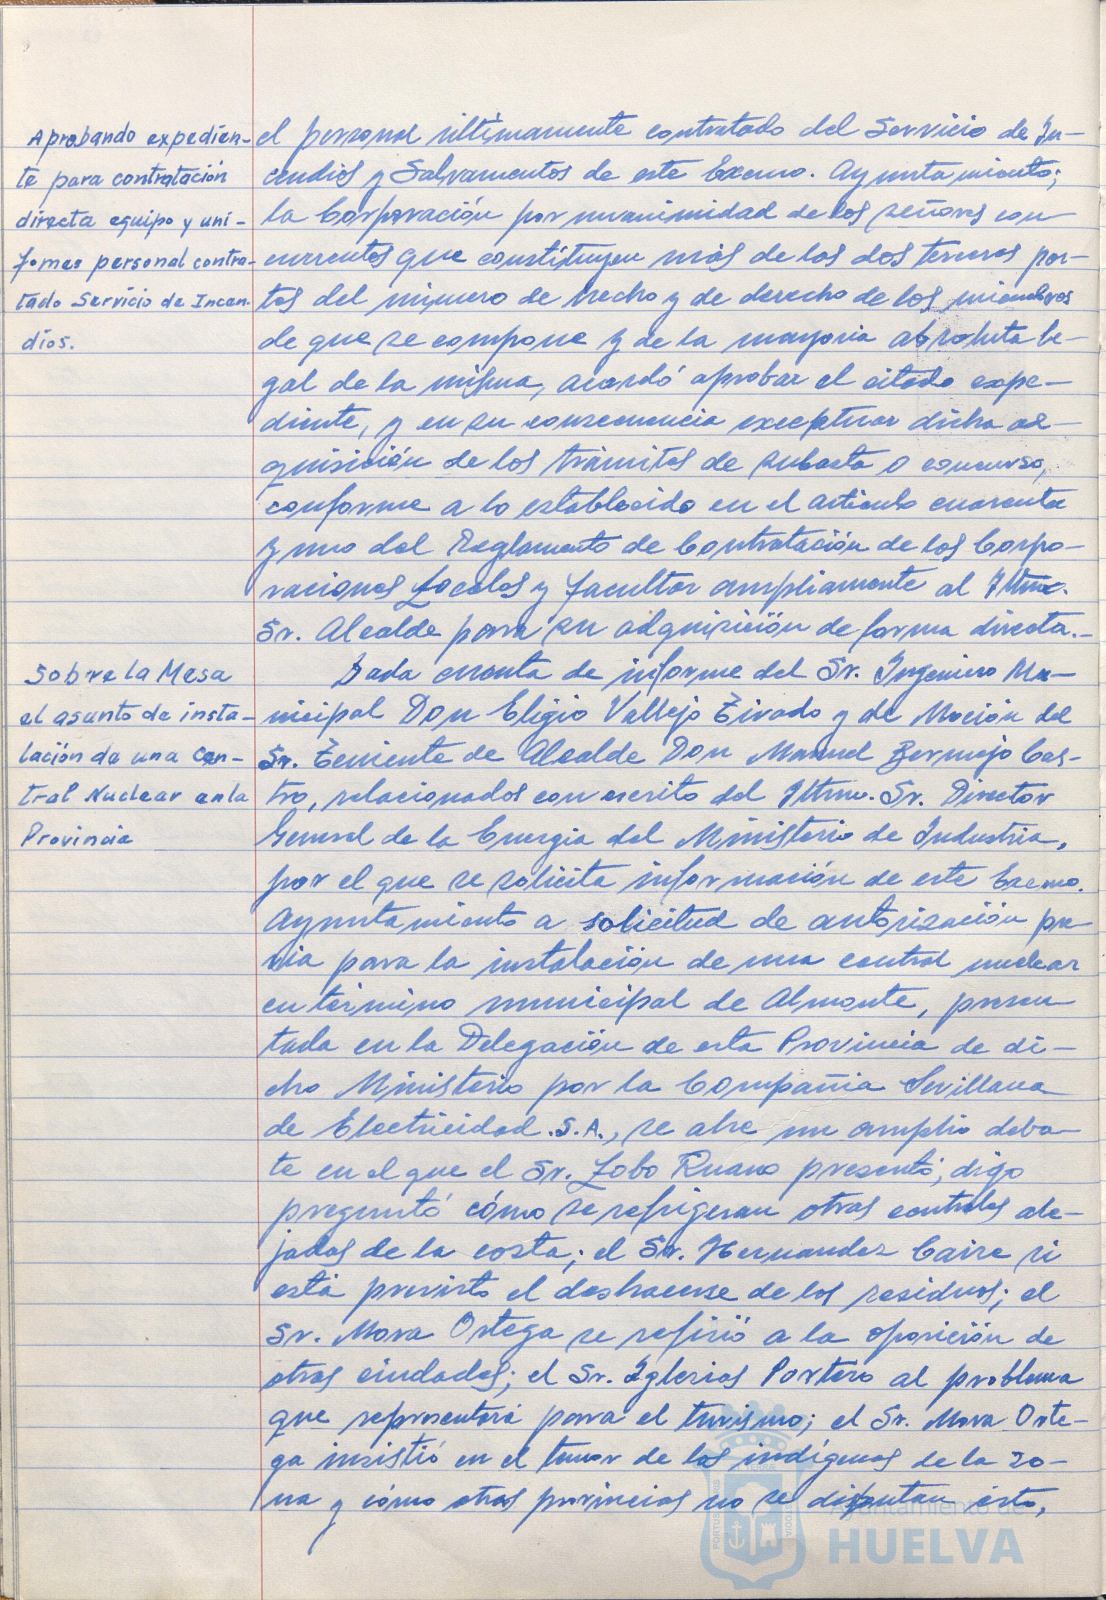 Aprobando expedien-
te para contratación
directa equipo y uni-
formes personal contra-
tado Servicio de Incen-
dios.
el personal últimamente contratado del Servicio de In-
cendios y Salvamentos de este Excmo. Ayuntamiento;
la Corporación por unanimidad de los señores con
currentes que constituyen más de las dos terceras par-
tes del número de hecho y de derecho de los miembros
de que se compone y de la mayoria absoluta le-
gal de la misma, acordó aprobar el citado expe-
diente, y en su consecuencia exceptuar dicha ad-
quisición de los trámites de subasta o concurso,
conforme a lo establecido en el articulo cuarenta
y uno del Reglamento de Contratación de las Corpo-
raciones Locales y facultar ampliamente al Iltmo.
Sr. Alcalde para su adquisición de forma directa.-
Sobre la Mesa
el asunto de insta-
lación de una Cen-
tral Nuclear en la
Provincia
Dada cuenta de informe del Sr. Ingeniero Mu-
nicipal Don Eligio Vallejo Tirado y de Moción del
Sr. Teniente de Alcalde Don Manuel Bermejo Cas-
tro, relacionados con escrito del Iltmo. Sr. Director
General de la Energia del Ministerio de Industria,
por el que se solicita información de este Excmo.
Ayuntamiento a solicitud de autorización pre
via para la instalación de una central nuclear
en término municipal de Almonte, presen
tada en la Delegación de esta Provincia de di-
cho Ministerio por la Compañia Sevillana
de Electricidad .S.A., se abre un amplio deba-
te en el que el Sr. Lobo Ruano presentó, digo
preguntó cómo se refrigeran otras centrales ale-
jadas de la costa; el Sr. Hernandez Caire si
está previsto el deshacerse de los residuos; el
Sr. Mora Ortega se refirió a la oposición de
otras ciudades; el Sr. Iglesias Portero al problema
que representará para el turismo; el Sr. Mora Orte-
ga insistió en el temor de los indígenas de la zo-
na y cómo otras provincias no se disputan ésto,
Ayuntamiento de
HUELVA